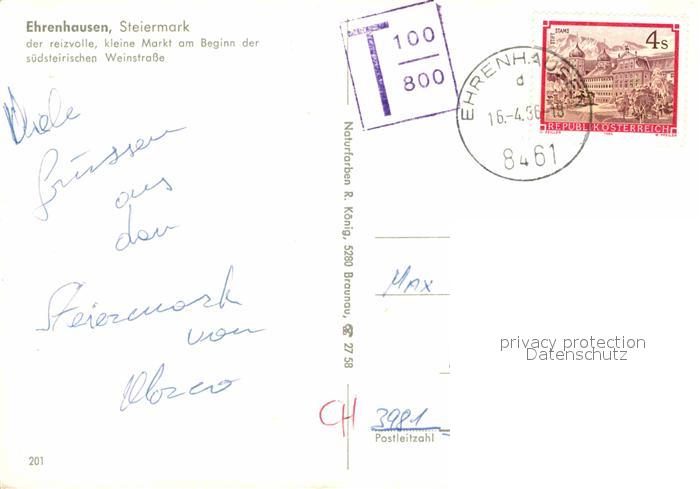 Ehrenhausen, Steiermark
der reizvolle, kleine Markt am Beginn der
südsteirischen Weinstraße
Viele
Grüssen
aus
der
Steiermark
von
Marco
201
Naturfarben R. König, 5280 Braunau, ☎ 27 58
T 100
800
EHRENHAUSEN
d
16.-4.86-18
8461
STIFT STAMS
4s
REPUBLIK ÖSTERREICH
Max
privacy protection
Datenschutz
CH 3981
Postleitzahl